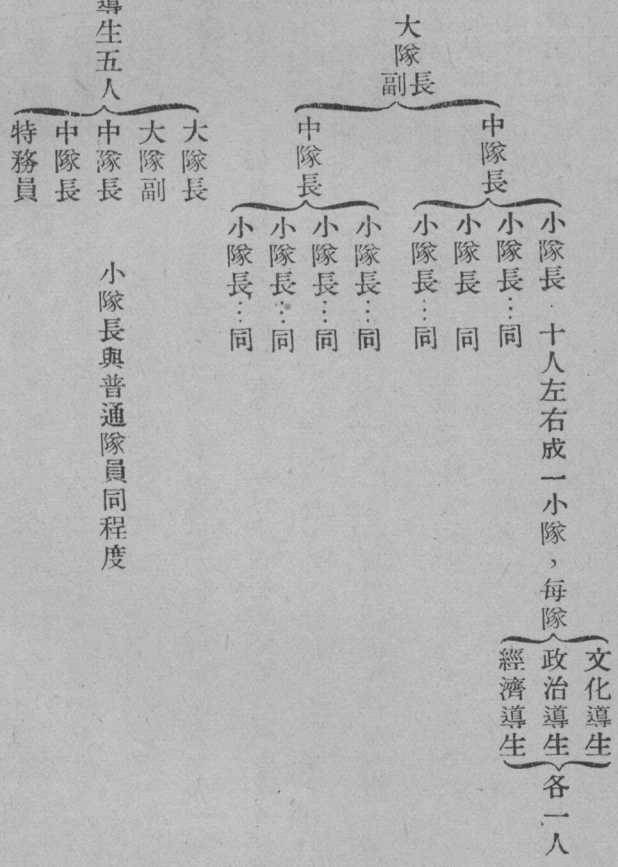 大隊長副
中隊長
小隊長‧十人左右成一小隊，每隊
文化導生
政治導生
經濟導生
各一人
小隊長…同
小隊長 同
小隊長…同
中隊長
小隊長…同
小隊長…同
小隊長…同
小隊長…同
導生五人
大隊長
大隊副
中隊長
中隊長
特務員
小隊長與普通隊員同程度